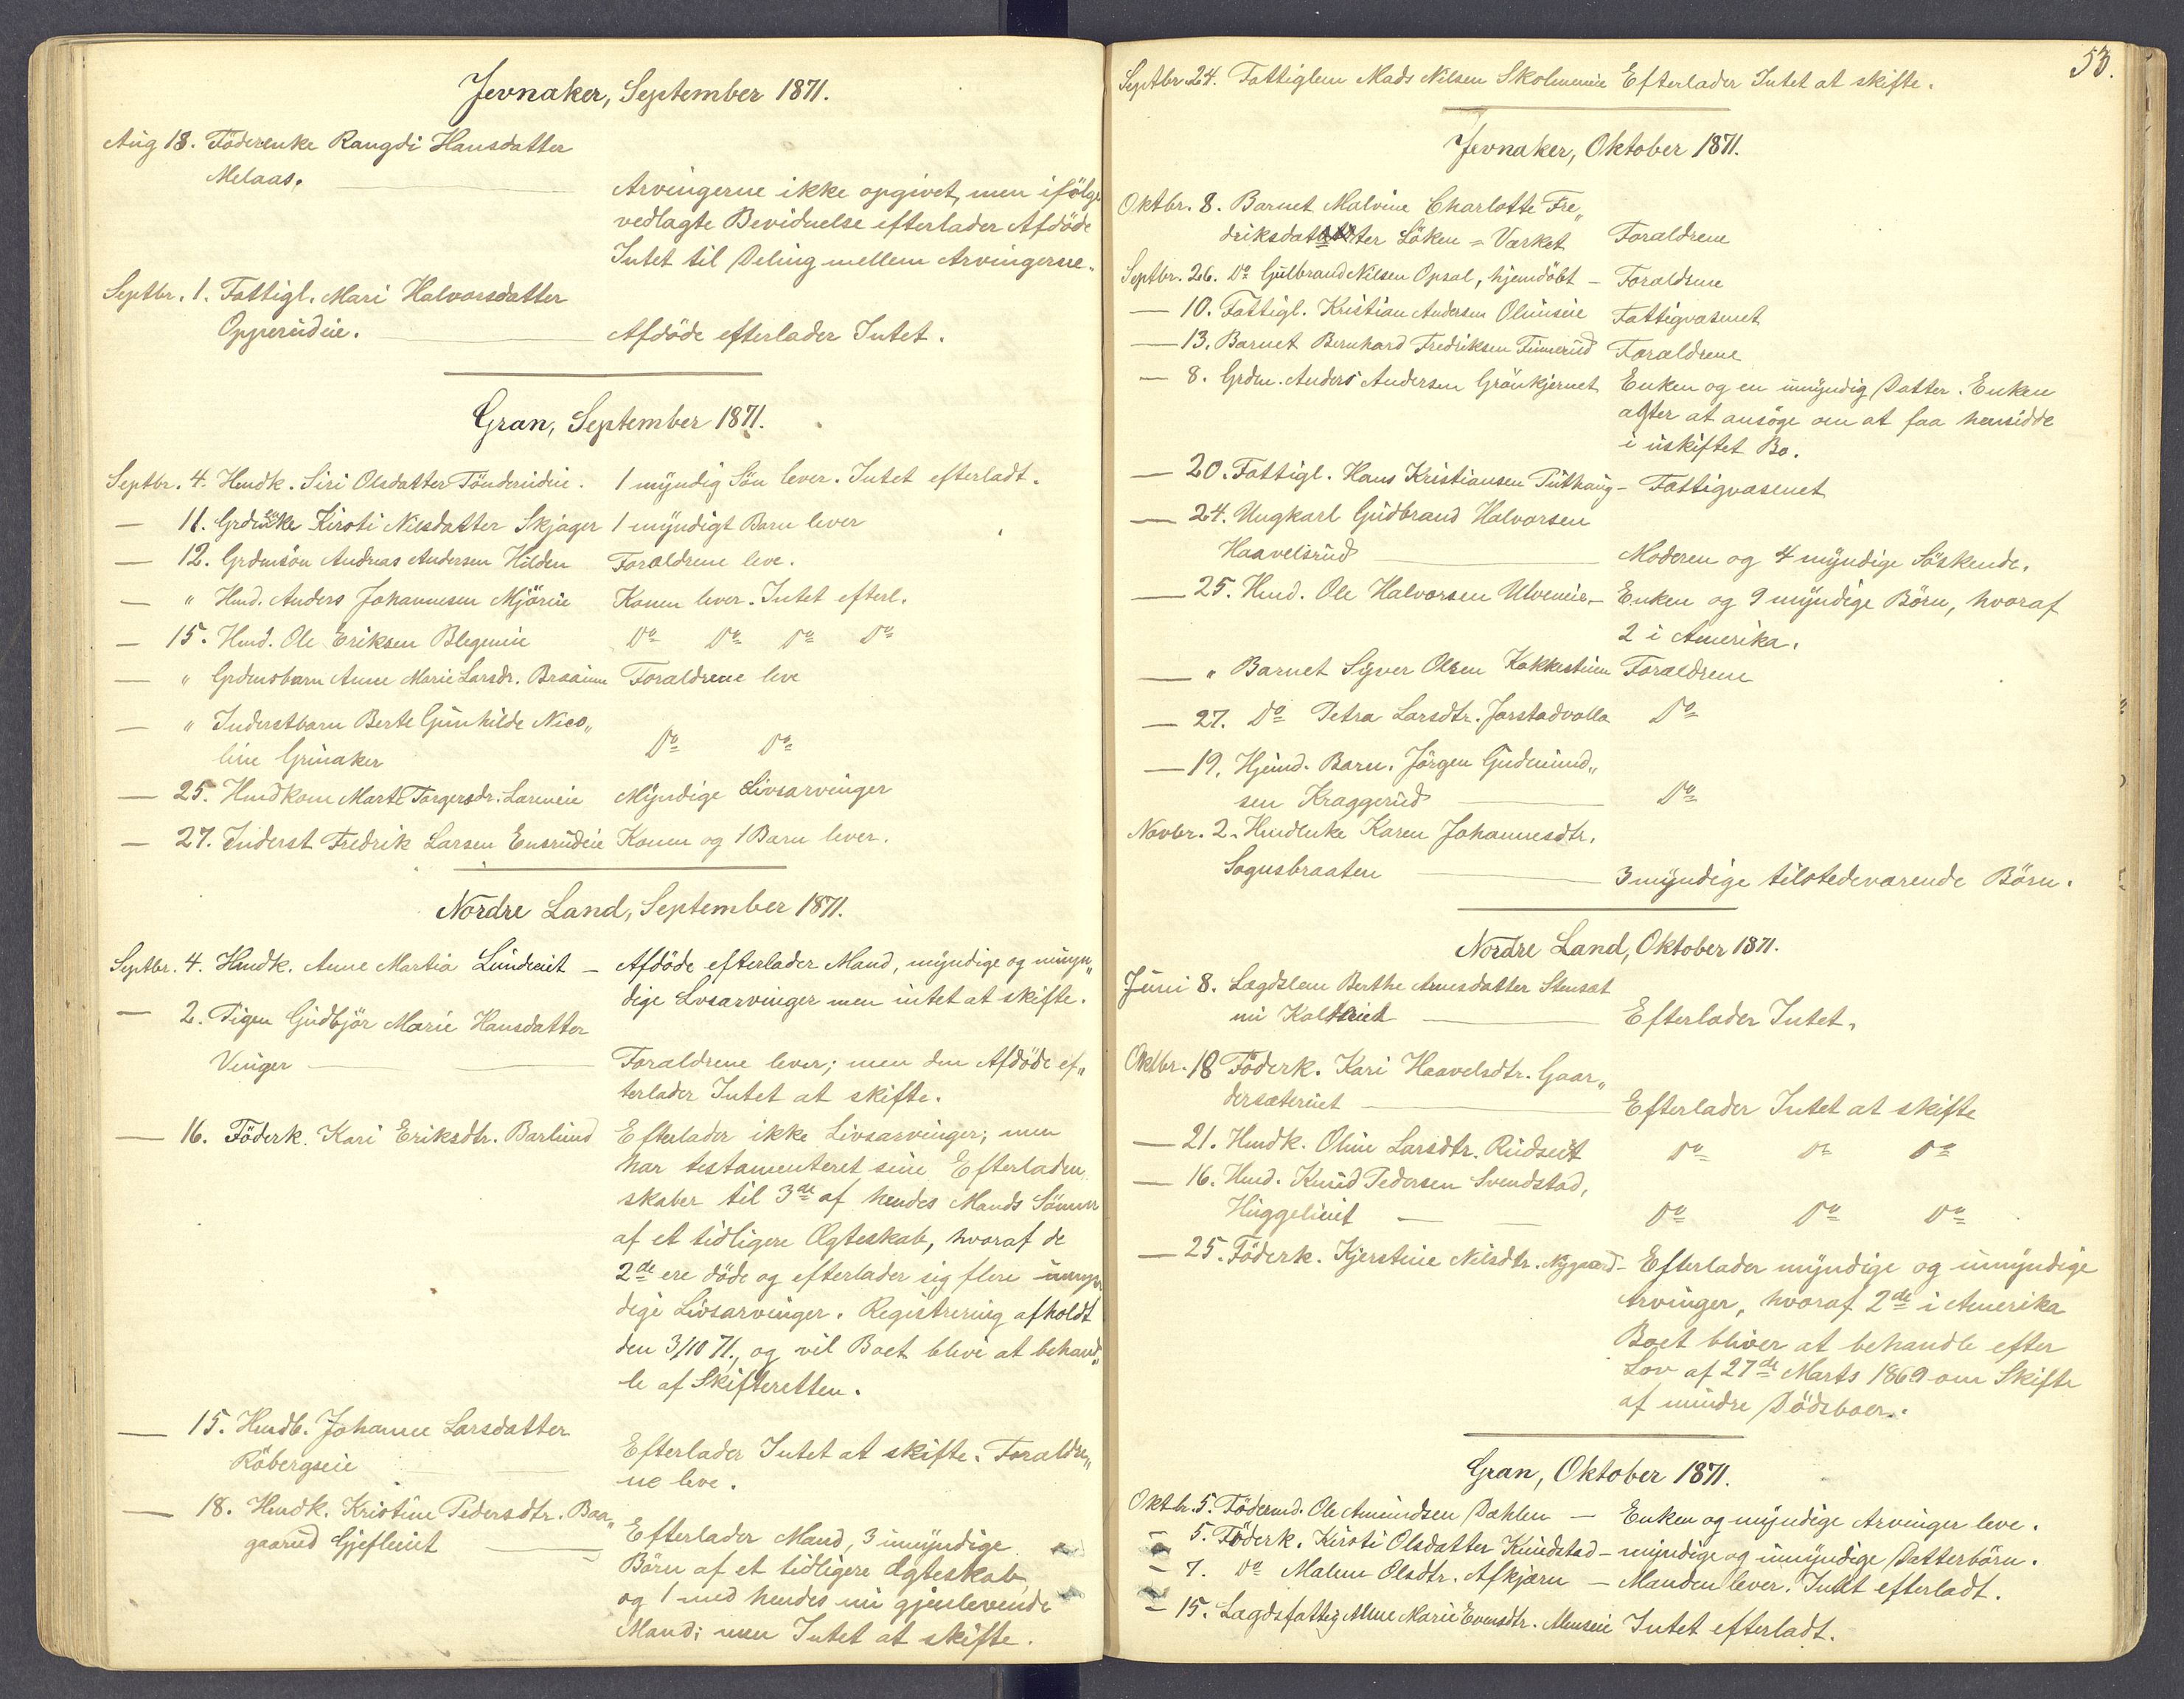 Jevnaker, September 1871.
Aug 18. Föderenke Rangdi Hansdatter
Melaas.
Arvingerne ikke opgivet, men ifölge
vedlagte Bevidnelse efterlader Afdöde
Intet til Deling mellem Arvingerne.
Septbr. 1. Fattigl. Mari Halvorsdatter
Opperudeie. Afdöde efterlader Intet.
Gran, September 1871.
Septbr. 4. Hmdk. Siri Olsdatter Tönderudeie. 1 myndig Sön lever. Intet efterladt.
— 11. Grdenke Kirsti Nilsdatter Skjager 1 myndigt Barn lever
— 12. Grdmsön Andreas Andersen Hilden Forældrene leve.
— " Hmd. Anders Johannesen Mjöreie Konen lever. Intet efterl.
— 15. Hmd. Ole Eriksen Blegeneie Do Do Do Do
— " Grdmsbarn Anne Marie Larsdr. Braaune Forældrene leve
— " Inderstbarn Berte Gunhilde Nico„
line Grinaker Do Do
— 25. Hmdkone Marte Torgersdr. Larmeie Myndige Livsarvinger
— 27. Inderst Fredrik Larsen Ensrudeie Konen og 1 Barn lever.
Nordre Land, September 1871.
Septbr. 4. Hmdk. Anne Martia Lundeeiet — Afdöde efterlader Mand, myndige og umyn„
dige Lvsarvinger men intet at skifte.
— 2. Pigen Gudbjör Marie Hansdatter
Vinger Forældrene lever; men den Afdöde ef„
terlader Intet at skifte.
— 16. Föderk. Kari Eriksdtr. Barlund Efterlader ikke Livsarvinger; men
har testamenteret sine Efterladen
skaber til 3de af hendes Mands Sönner
af et tidligere Ægteskab, hvoraf de
2de ere döde og efterlader sig flere umyn
dige Livsarvinger. Registrering afholdt
den 3/10 71., og vil Boet blive at behand„
le af Skifteretten.
— 15. Hmdb. Johanne Larsdatter
Röbergseie Efterlader Intet at skifte. Forældre„
ne leve.
— 18. Hmdk. Kristine Pedersdtr. Baa„
gaarud Gjefleeiet Efterlader Mand, 3 umyndige
Börn af et tidligere Ægteskab,
og 1 med hendes nu gjenlevende
Mand; men Intet at skifte.
53.
Septbr. 24. Fattiglem Mads Nilsen Skolmeneie Efterlader Intet at skifte.
Jevnaker, Oktober 1871.
Oktbr. 8. Barnet Malvine Charlotte Fre„
driksdatter Löken = Værket Forældrene
Septbr. 26. Do Gulbrand Nilsen Opsal, hjemdöbt — Forældrene
— 10. Fattigl. Kristian Andersen Olimseie Fattigvæsenet
— 13. Barnet Bernhard Fredriksen Finnerud Forældrene
— 8. Grdm. Anders Andersen Grönkjernet Enken og en umyndig Datter. Enken
agter at ansöge om at faa hensidde
i uskiftet Bo.
— 20. Fattigl. Hans Kristiansen Puthaug — Fattigvæsenet
— 24. Ungkarl Gudbrand Halvorsen
Haavelsrud Moderen og 4 myndige Söskende.
— 25. Hmd. Ole Halvorsen Ulveneie — Enken og 9 myndige Börn, hvoraf
2 i Amerika.
— " Barnet Syver Olsen Kokkestuen Forældrene
— 27. Do Petra Larsdtr. Jorstadvolla Do
— 19. Hjemd. Barn. Jörgen Gudmund„
sen Kraggerud Do
Novbr. 2. Hmdenke Karen Johannesdtr.
Sognsbraaten 3 myndige tilstedeværende Börn.
Nordre Land, Oktober 1871.
Juni 8. Lægdslem Berthe Arnesdatter Stensæt
Efterlader Intet.
Oktbr. 18 Föderk. Kari Haavelsdtr. Gaar„
dersætereiet Efterlader Intet at skifte
— 21. Hmdk. Oline Larsdtr. Rudseiet Do Do Do
— 16. Hmd. Knud Pedersen Svendstad,
Huggelieiet Do Do Do
— 25. Föderk. Kjerstine Nilsdtr. Nygaard — Efterlader myndige og umyndige
Arvinger, hvoraf 2de i Amerika
Boet bliver at behandle efter
Lov af 27de Marts 1869 om Skifte
af mindre Dödsboer.
Gran, Oktober 1871.
Oktbr. 5. Födermd. Ole Amundsen Dæhlen — Enken og myndige Arvinger leve.
— 5. Föderk. Kirsti Olsdatter Knudstad — myndige og umyndige Datterbörn.
— 7. Do Malene Olsdtr. Afkjærn — Manden lever. Intet efterladt.
— 15. Lægdsfattig Anne Marie Evensdtr. Almseie Intet efterladt.